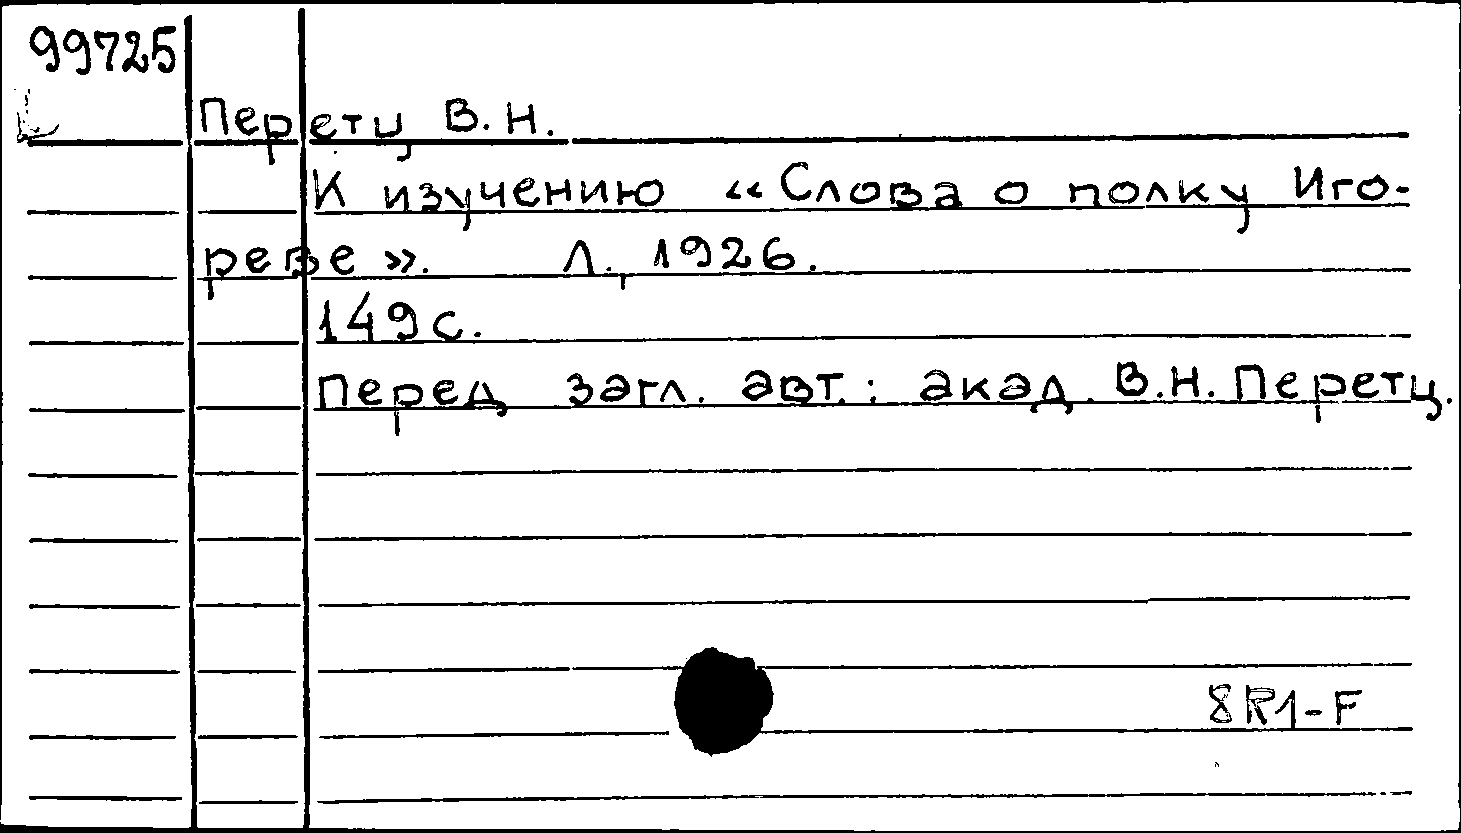 99725
Перетц В.Н.
К изучению «Слова о полку Иго-
реве». Л., 1926.
149 с.
Перед загл. авт.: акад. В.Н. Перетц.
8R1-F